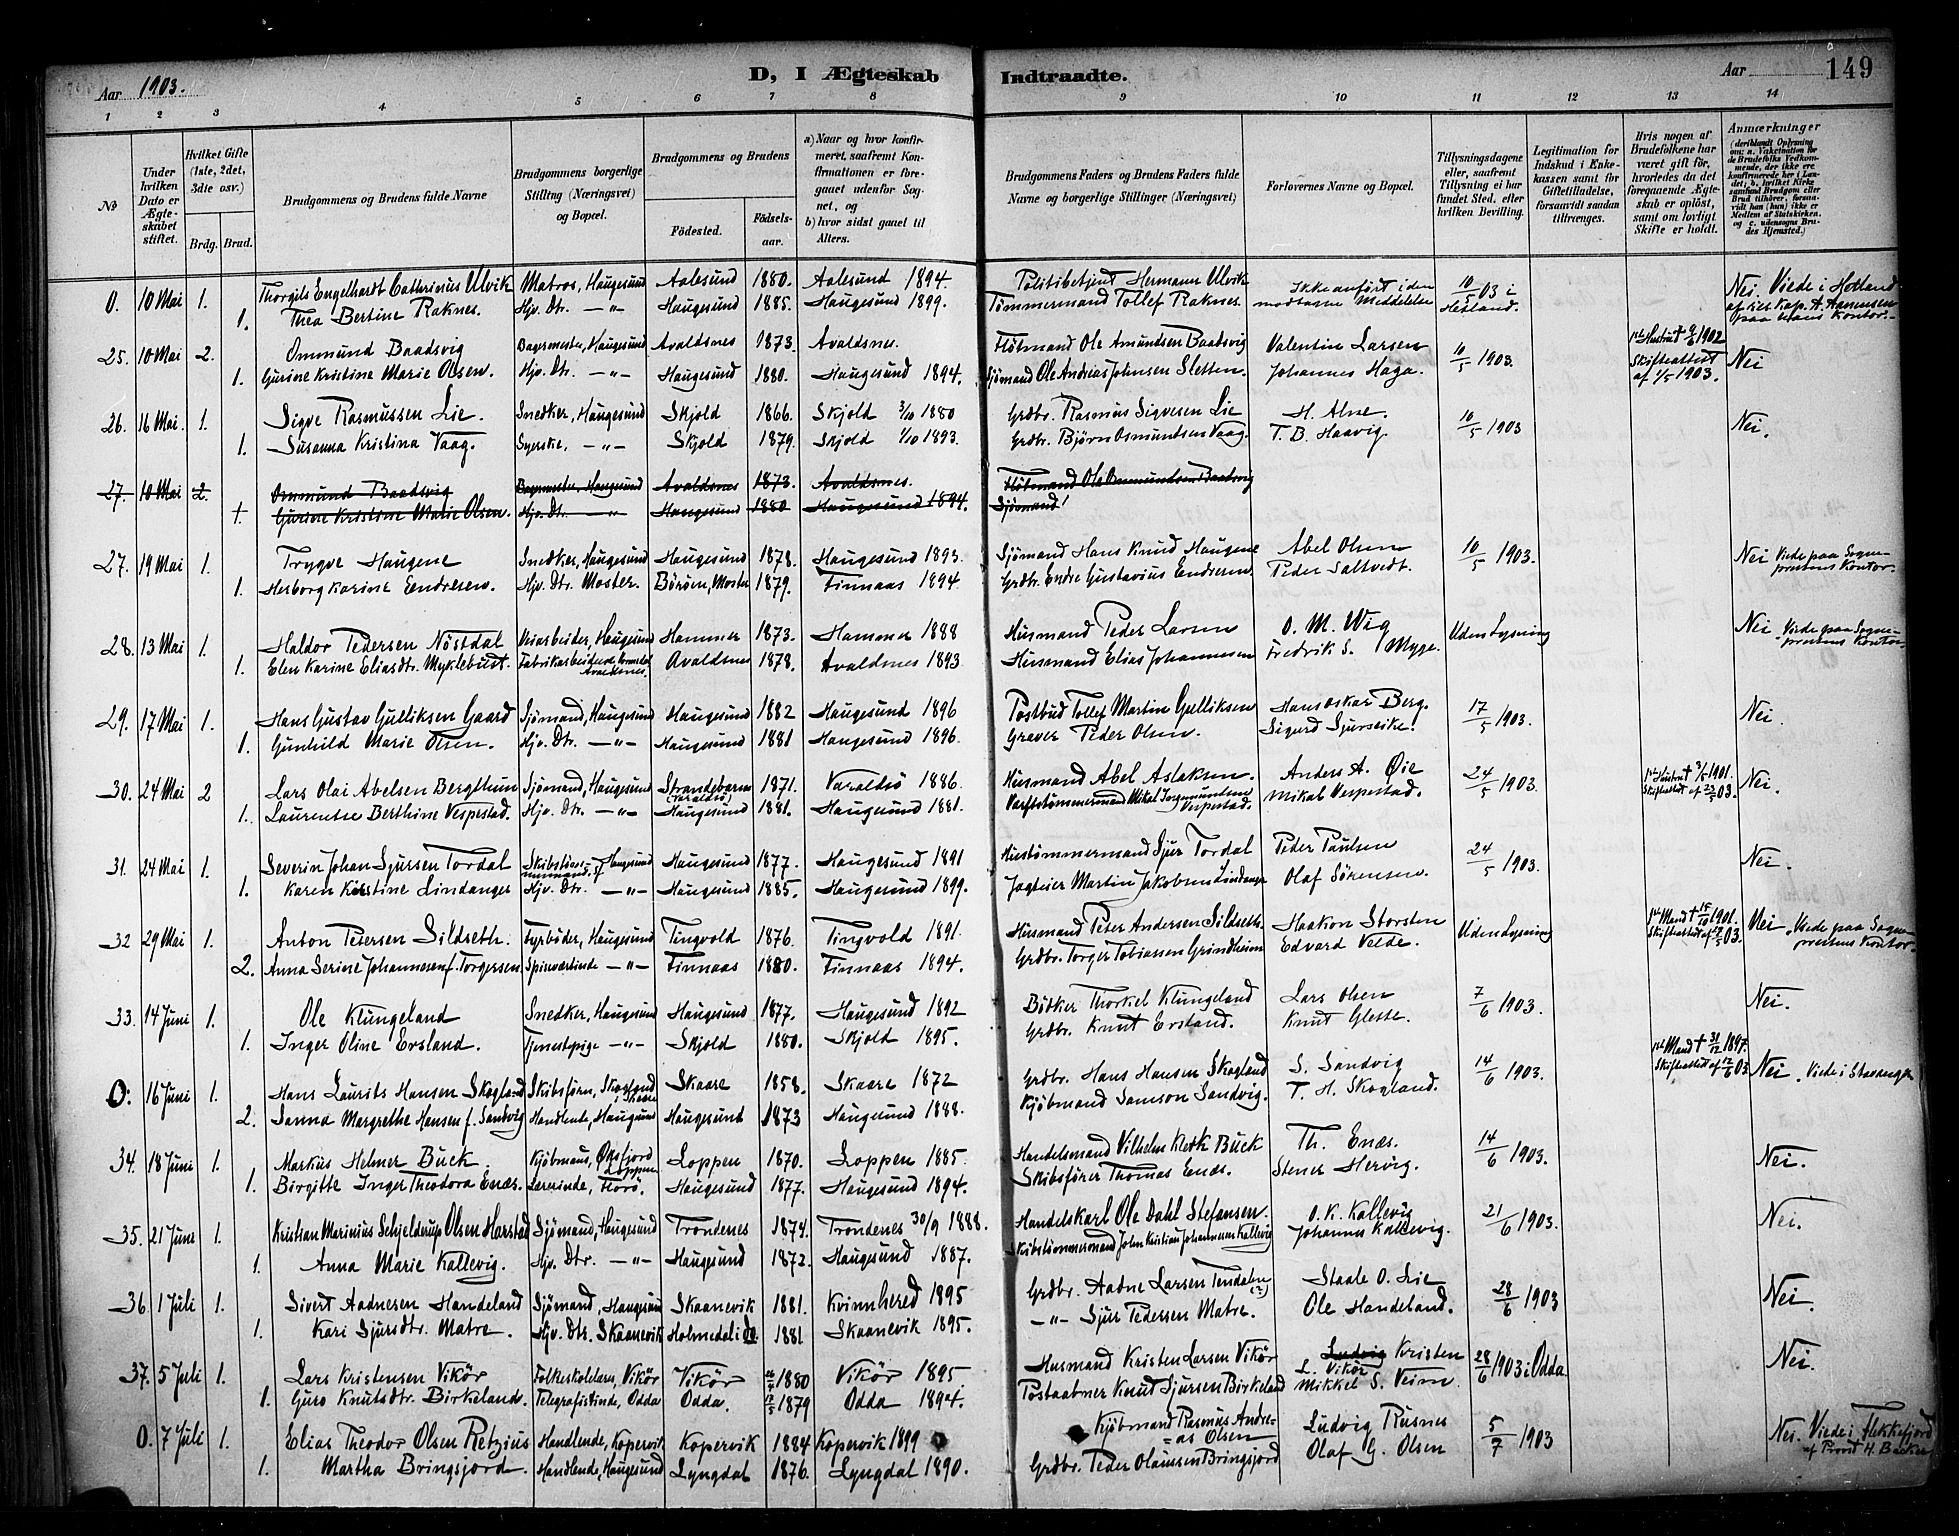 Aar 1903. D, I Ægteskab Indtraadte. Aar 149
1 2 3 4 5 6 7 8 9 10 11 12 13 14
№ Under hvilken Dato er Ægteskabet stiftet. Hvilket Gifte (1ste, 2det, 3die osv.) Brdg. Brud. Brudgommens og Brudens fulde Navne Brudgommens borgerlige Stilling (Næringsvei) og Bopæl. Brudgommens og Brudens Fødested. Fødselsaar. a) Naar og hvor konfirmeret, saafremt Konfirmationen er foregaaet udenfor Sognet, og b) hvor sidst gaaet til Alters. Brudgommens Faders og Brudens Faders fulde Navne og borgerlige Stillinger (Næringsvei) Forlovernes Navne og Bopæl. Tillysningsdagene eller, saafremt Tillysning ei har fundet Sted, efter hvilken Bevilling. Legitimation for Indskud i Enkekassen samt for Giftetilladelse, forsaavidt saadan tiltrænges. Hvis nogen af Brudefolkene har været gift før, hvorledes da det foregaaende Ægteskab er opløst, samt om lovligt Skifte er holdt. Anmærkninger (deriblandt Oplysning om: a. Vakcination for de Brudefolks Vedkommende, der ikke ere konfirmerede her i Landet; b. hvilket Kirkesamfund Brudgom eller Brud tilhører, forsaavidt han (hun) ikke er Medlem af Statskirken, og c. udensogns Brudes Hjemsted.)
0. 10 Mai 1. Thorgils Engelhardt Cathrinus Ulvik Matros, Haugesund Aalesund 1880. Aalesund 1894. Politibetjent Hermann Ulvik Ikke anført i den 10/5 03 i Nei. Viede i Hetland
1. Thea Bertine Raknes. Hjv. Dtr. —"— Haugesund 1885. Haugesund 1899. Tømmermand Tollef Raknes. modtagne Meddelelse Hetland. af res. kap. A. Aanensen
paa hans Kontor.
25. 10 Mai 2. Ommund Baadsvig Bagermester, Haugesund Avaldsnes 1873. Avaldsnes. Fløtmand Ole Amundsen Baadsvig Valentin Larsen 10/5 1903. 1ste Hustru † 9/6 1902 Nei
1. Gurine Kristine Marie Olsen. Hjv. Dtr. —"— Haugesund 1880. Haugesund 1894. Sjømand Ole Andreas Johnsen Sletten. Johannes Haga. Skifteattest af 1/5 1903.
26. 16 Mai. 1. Sigve Rasmussen Lie. Snedker, Haugesund Skjold 1866. Skjold 3/10 1880 Grdbr. Rasmus Sigvesen Lie H. Alne. 10/5 1903 Nei.
1. Susanna Kristina Vaag. Syerske, —"— Skjold 1879. Skjold 1/10 1893. Grdbr. Bjørn Osmundsen Vaag. T. B. Haavig.
27. 10 Mai 2. Ommund Baadsvig Bagermester, Haugesund Avaldsnes 1873. Avaldsnes. Fløtmand Ole Ommundsen Baadsvig
1. Gurine Kristine Marie Olsen. Hjv. Dtr. —"— Haugesund 1880 Haugesund 1894. Sjømand
27. 19 Mai 1. Trygve Haugene Snedker, Haugesund Haugesund 1878. Haugesund 1893. Sjømand Hans Knud Haugene Abel Olsen 10/5 1903. Nei Viede paa Sogne-
1. Herborg Karine Endresen. Hjv. Dtr. Moster. Børøen, Moster 1879. Finnaas 1894. Grdbr. Endre Gustavius Endresen. Peder Saltvedt. prestens Kontor.
28. 13 Mai 1. Haldor Pedersen Nöstdal Veiarbeider, Haugesund Hammer 1873. Hammer 1888 Husmand Peder Larsen O. M. Wig Uden Lysning Nei. Viede paa Sogne-
1. Elen Karine Eliasdtr. Myklebust. Avaldsnes. Avaldsnes 1878. Avaldsnes 1893. Husmand Elias Johannesen Fredrik S. Myge. prestens Kontor.
29. 17 Mai 1. Hans Gustav Gulliksen Gaard Sjømand, Haugesund Haugesund 1882 Haugesund 1896 Postbud Tollef Martin Gulliksen Hans Oskar Berg. 17/5 1903. Nei.
1. Gunhild Marie Olsen. Hjv. Dtr. —"— Haugesund 1881 Haugesund 1896. Graver Peder Olsen. Sigurd Sjurseike.
30. 24 Mai 2 Lars Olai Abelsen Bergthun Sjømand, Haugesund Strandebarm (Varaldsö) 1871. Varaldsö 1886. Husmand Abel Aslaksen. Anders A. Øie 24/5 1903. 1ste Hustru † 3/5 1901. Nei.
1. Laurentse Berthine Vespestad. Hjv. Dtr. —"— Haugesund 1881. Haugesund 1881. Værftstømmermand Mikal Ingemundsen Vespestad. Mikal Vespestad. Skifteattest af 23/5 03.
31. 24 Mai 1. Severin Johan Sjursen Tordal Skibstömmermand, Haugesund Haugesund 1877. Haugesund 1891 Hustömmermand Sjur Tordal Peder Paulsen 24/5 1903. Nei.
1. Karen Kirstine Lindanger Hjv. Dtr. —"— Haugesund 1885. Haugesund 1899. Jagteier Martin Jakobsen Lindanger Olaf Sörensen.
32 29 Mai 1. Anton Petersen Sildseth. Fyrböder, Haugesund Tingvold 1876. Tingvold 1891. Husmand Peter Andersen Sildseth. Haakon Storsten Uden Lysning 1ste Mand † 15/10 1901. Nei. Viede paa Sogne-
2. Anna Serine Johannesen f. Torgersen Spinværinde —"— Finnaas 1880. Finnaas 1894. Grdbr. Torger Tobiassen Grindheim Edvard Velde. Skifteattest af 7/5 03. prestens Kontor.
33. 14 Juni 1. Ole Klungeland Snedker, Haugesund Haugesund 1877. Haugesund 1892 Bötker Thorkel Klungeland Lars Olsen 7/6 1903. Nei.
1. Inger Oline Ersland. Tjenestpige —"— Skjold 1880. Skjold 1895. Grdbr. Knut Ersland. Knut Glette.
0. 16 Juni 1. Hans Laurits Hansen Skogland Skibsförer, Skogland Skaare Skaare 1858. Skaare 1872 Grdbr. Hans Hansen Skogland S. Sandvig 14/6 1903. 1ste Mand † 31/12 1897. Nei. Viede i Stavanger
2. Sanna Margrethe Hansen f. Sandvig Handlende, Haugesund Haugesund 1873 Haugesund 1888. Kjöbmand Samson Sandvig. T. H. Skogland. Skifteattest af 12/6 03
34. 18 Juni 1. Markus Helmer Buck. Kjöbmand, Øksfjord Loppen Loppen 1870. Loppen 1885. Handelsmand Vilhelm Buck Th. Enæs. 14/6 1903. Nei.
1. Birgitte Inger Theodora Enæs. Lærerinde, Florö. Haugesund 1877. Haugesund 1894. Skibsförer Thomas Enæs. Stener Hervig.
35. 21 Juni 1. Kristian Marinius Schjeldrup Olsen Harstad Sjömand, Haugesund Trondenes 1874. Trondenes 30/9 1888. Handelskarl Ole Dahl Stefansen. O. K. Kallevig 21/6 1903. Nei.
1. Anna Marie Kallevig. Hjv. Dtr. —"— Haugesund 1872. Haugesund 1887. Skibstömmermand John Kristian Johannesen Kallevig Johannes Kallevig.
36. 1 Juli 1. Sivert Aadnesen Handeland Sjömand, Haugesund Skaanevik 1881. Kvinnhered 1895 Grdbr. Aadne Larsen Staale O. Lie 28/6 1903 Nei.
1. Kari Sjursdtr. Matre. Hjv. Dtr. Skaanevik Holmedal i do. 1881 Skaanevik 1895. —"— Sjur Pedersen Matre. Ole Handeland.
37. 5 Juli 1. Lars Kristensen Vikör Folkeskolelærer, Vikör Vikör 1880 Vikör 1895. Husmand Kristen Larsen Vikör Ludvig Kristen L. Vikör 28/6 1903 i Odda Nei.
1. Guro Knutsdtr. Birkeland. Telegrafistinde, Odda Odda. 1879 Odda 1894. Postaabner Knut Sjursen Birkeland Mikkel S. Veim.
0. 7 Juli 1. Elias Theodor Olsen Retzius Handlende, Kopervik Kopervik 1884 Kopervik 1899 Kjöbmand Rasmus Andreas Olsen Ludvig Rusnes 5/7 1903 Nei. Viede i Flekkefjord
1. Martha Bringsjord. Handlende, Haugesund Lyngdal 1876. Lyngdal 1890. Grdbr. Peder Olaussen Bringsjord Olaf G. Olsen af Provst H. Barker